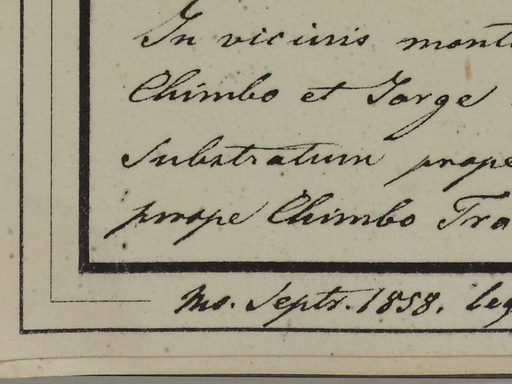 In vicinis mont
Chimbo et Jorge
Substratum prope
prope Chimbo Tra
Ms. Septr. 1858. leg